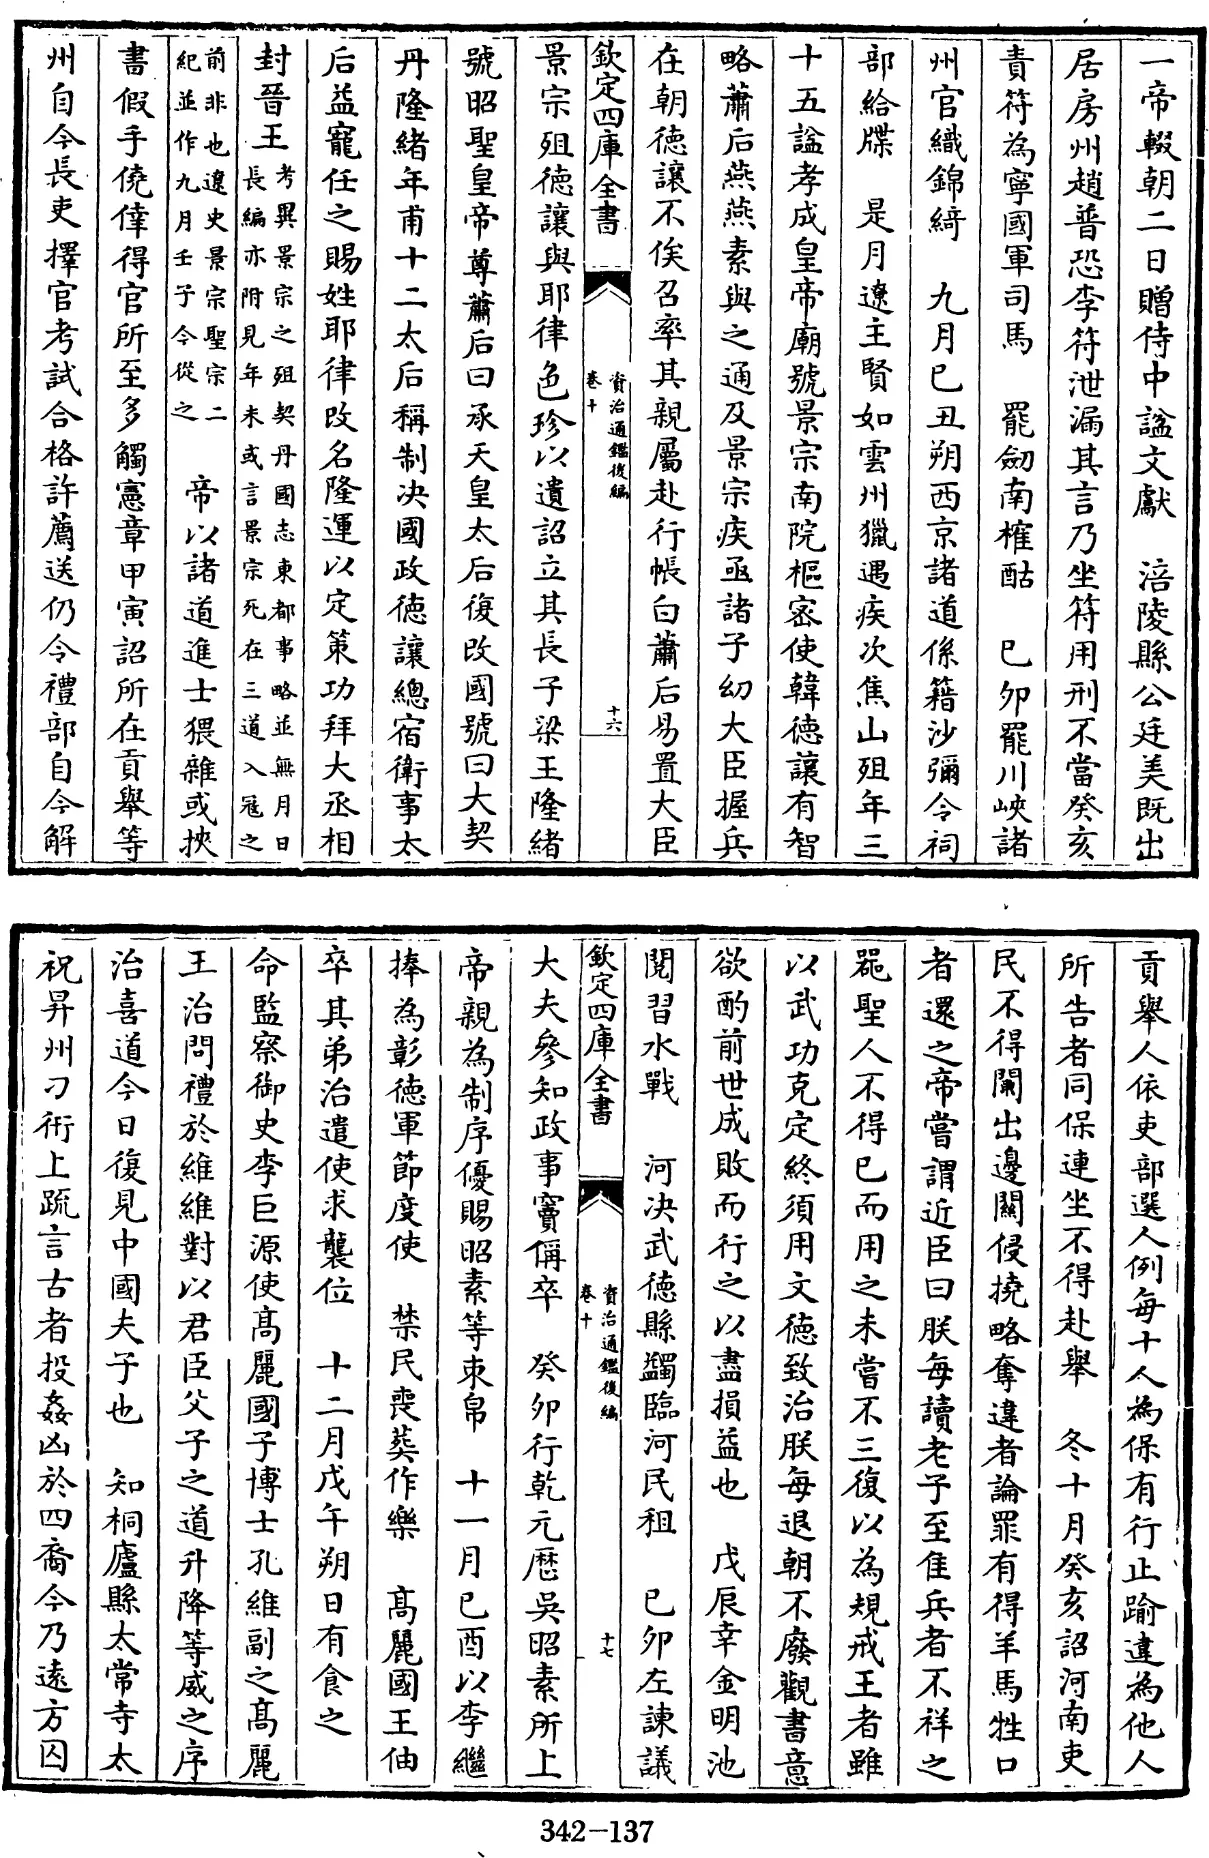 一帝輟朝二日贈侍中諡文獻　涪陵縣公廷美既出
居房州趙普恐李符泄漏其言乃坐符用刑不當癸亥
責符為寧國軍司馬　罷劒南榷酤　巳卯罷川峽諸
州官織錦綺　九月巳丑朔西京諸道係籍沙彌令祠
部給牒　是月遼主賢如雲州獵遇疾次焦山殂年三
十五諡孝成皇帝廟號景宗南院樞宻使韓德讓有智
略蕭后燕燕素與之通及景宗疾亟諸子幼大臣握兵
在朝德讓不俟召率其親屬赴行帳白蕭后易置大臣
欽定四庫全書
資治通鑑後編
卷十
十六
景宗殂德讓與耶律色珍以遺詔立其長子梁王隆緒
號昭聖皇帝尊蕭后曰承天皇太后復改國號曰大契
丹隆緒年甫十二太后稱制决國政德讓總宿衛事太
后益寵任之賜姓耶律改名隆運以定策功拜大丞相
封晉王
考異景宗之殂契丹國志東都事略並無月日
長編亦附見年末或言景宗死在三道入冦之
前非也遼史景宗聖宗二
紀並作九月壬子今從之
帝以諸道進士猥雜或挾
書假手僥倖得官所至多觸憲章甲寅詔所在貢舉等
州自今長吏擇官考試合格許薦送仍令禮部自今解
貢舉人依吏部選人例每十人為保有行止踰違為他人
所告者同保連坐不得赴舉　冬十月癸亥詔河南吏
民不得闌出邊關侵撓略奪違者論罪有得羊馬牲口
者還之帝嘗謂近臣曰朕每讀老子至佳兵者不祥之
器聖人不得已而用之未嘗不三復以為規戒王者雖
以武功克定終須用文德致治朕每退朝不廢觀書意
欲酌前世成敗而行之以盡損益也　戊辰幸金明池
閱習水戰　河決武德縣蠲臨河民租　巳卯左諫議
欽定四庫全書
資治通鑑後編
卷十
十七
大夫參知政事竇偁卒　癸卯行乾元歷吳昭素所上
帝親為制序優賜昭素等束帛　十一月巳酉以李繼
捧為彰德軍節度使　禁民喪葬作樂　髙麗國王伷
卒其弟治遣使求襲位　十二月戊午朔日有食之
命監察御史李巨源使髙麗國子博士孔維副之髙麗
王治問禮於維維對以君臣父子之道升降等威之序
治喜道今日復見中國夫子也　知桐廬縣太常寺太
祝昇州刁衎上疏言古者投姦凶於四裔今乃遠方囚
342-137